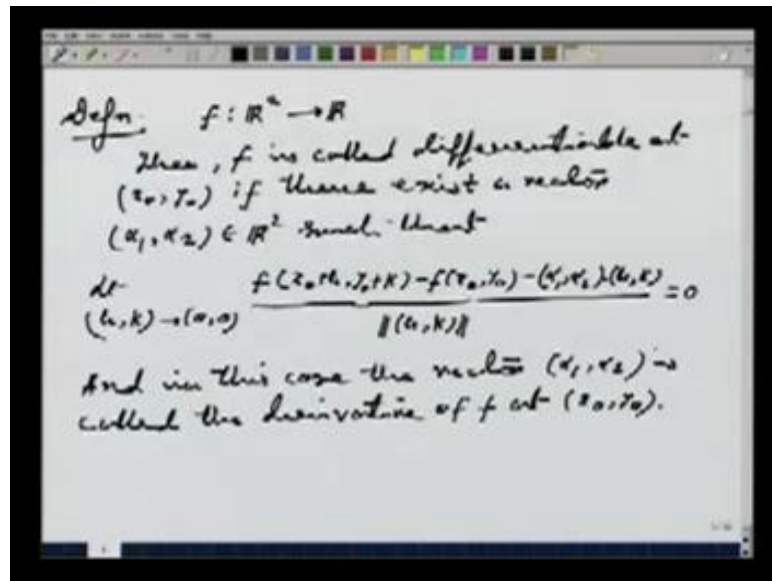 Defn. f : ℝ² → ℝ
Then, f is called differentiable at
(x₀, y₀) if there exist a vector
(α₁, α₂) ∈ ℝ² such that
lt (h,k)→(0,0) f(x₀+h, y₀+k) − f(x₀, y₀) − (α₁, α₂).(h,k) / ‖(h,k)‖ = 0
And in this case the vector (α₁, α₂) is
called the derivative of f at (x₀, y₀).